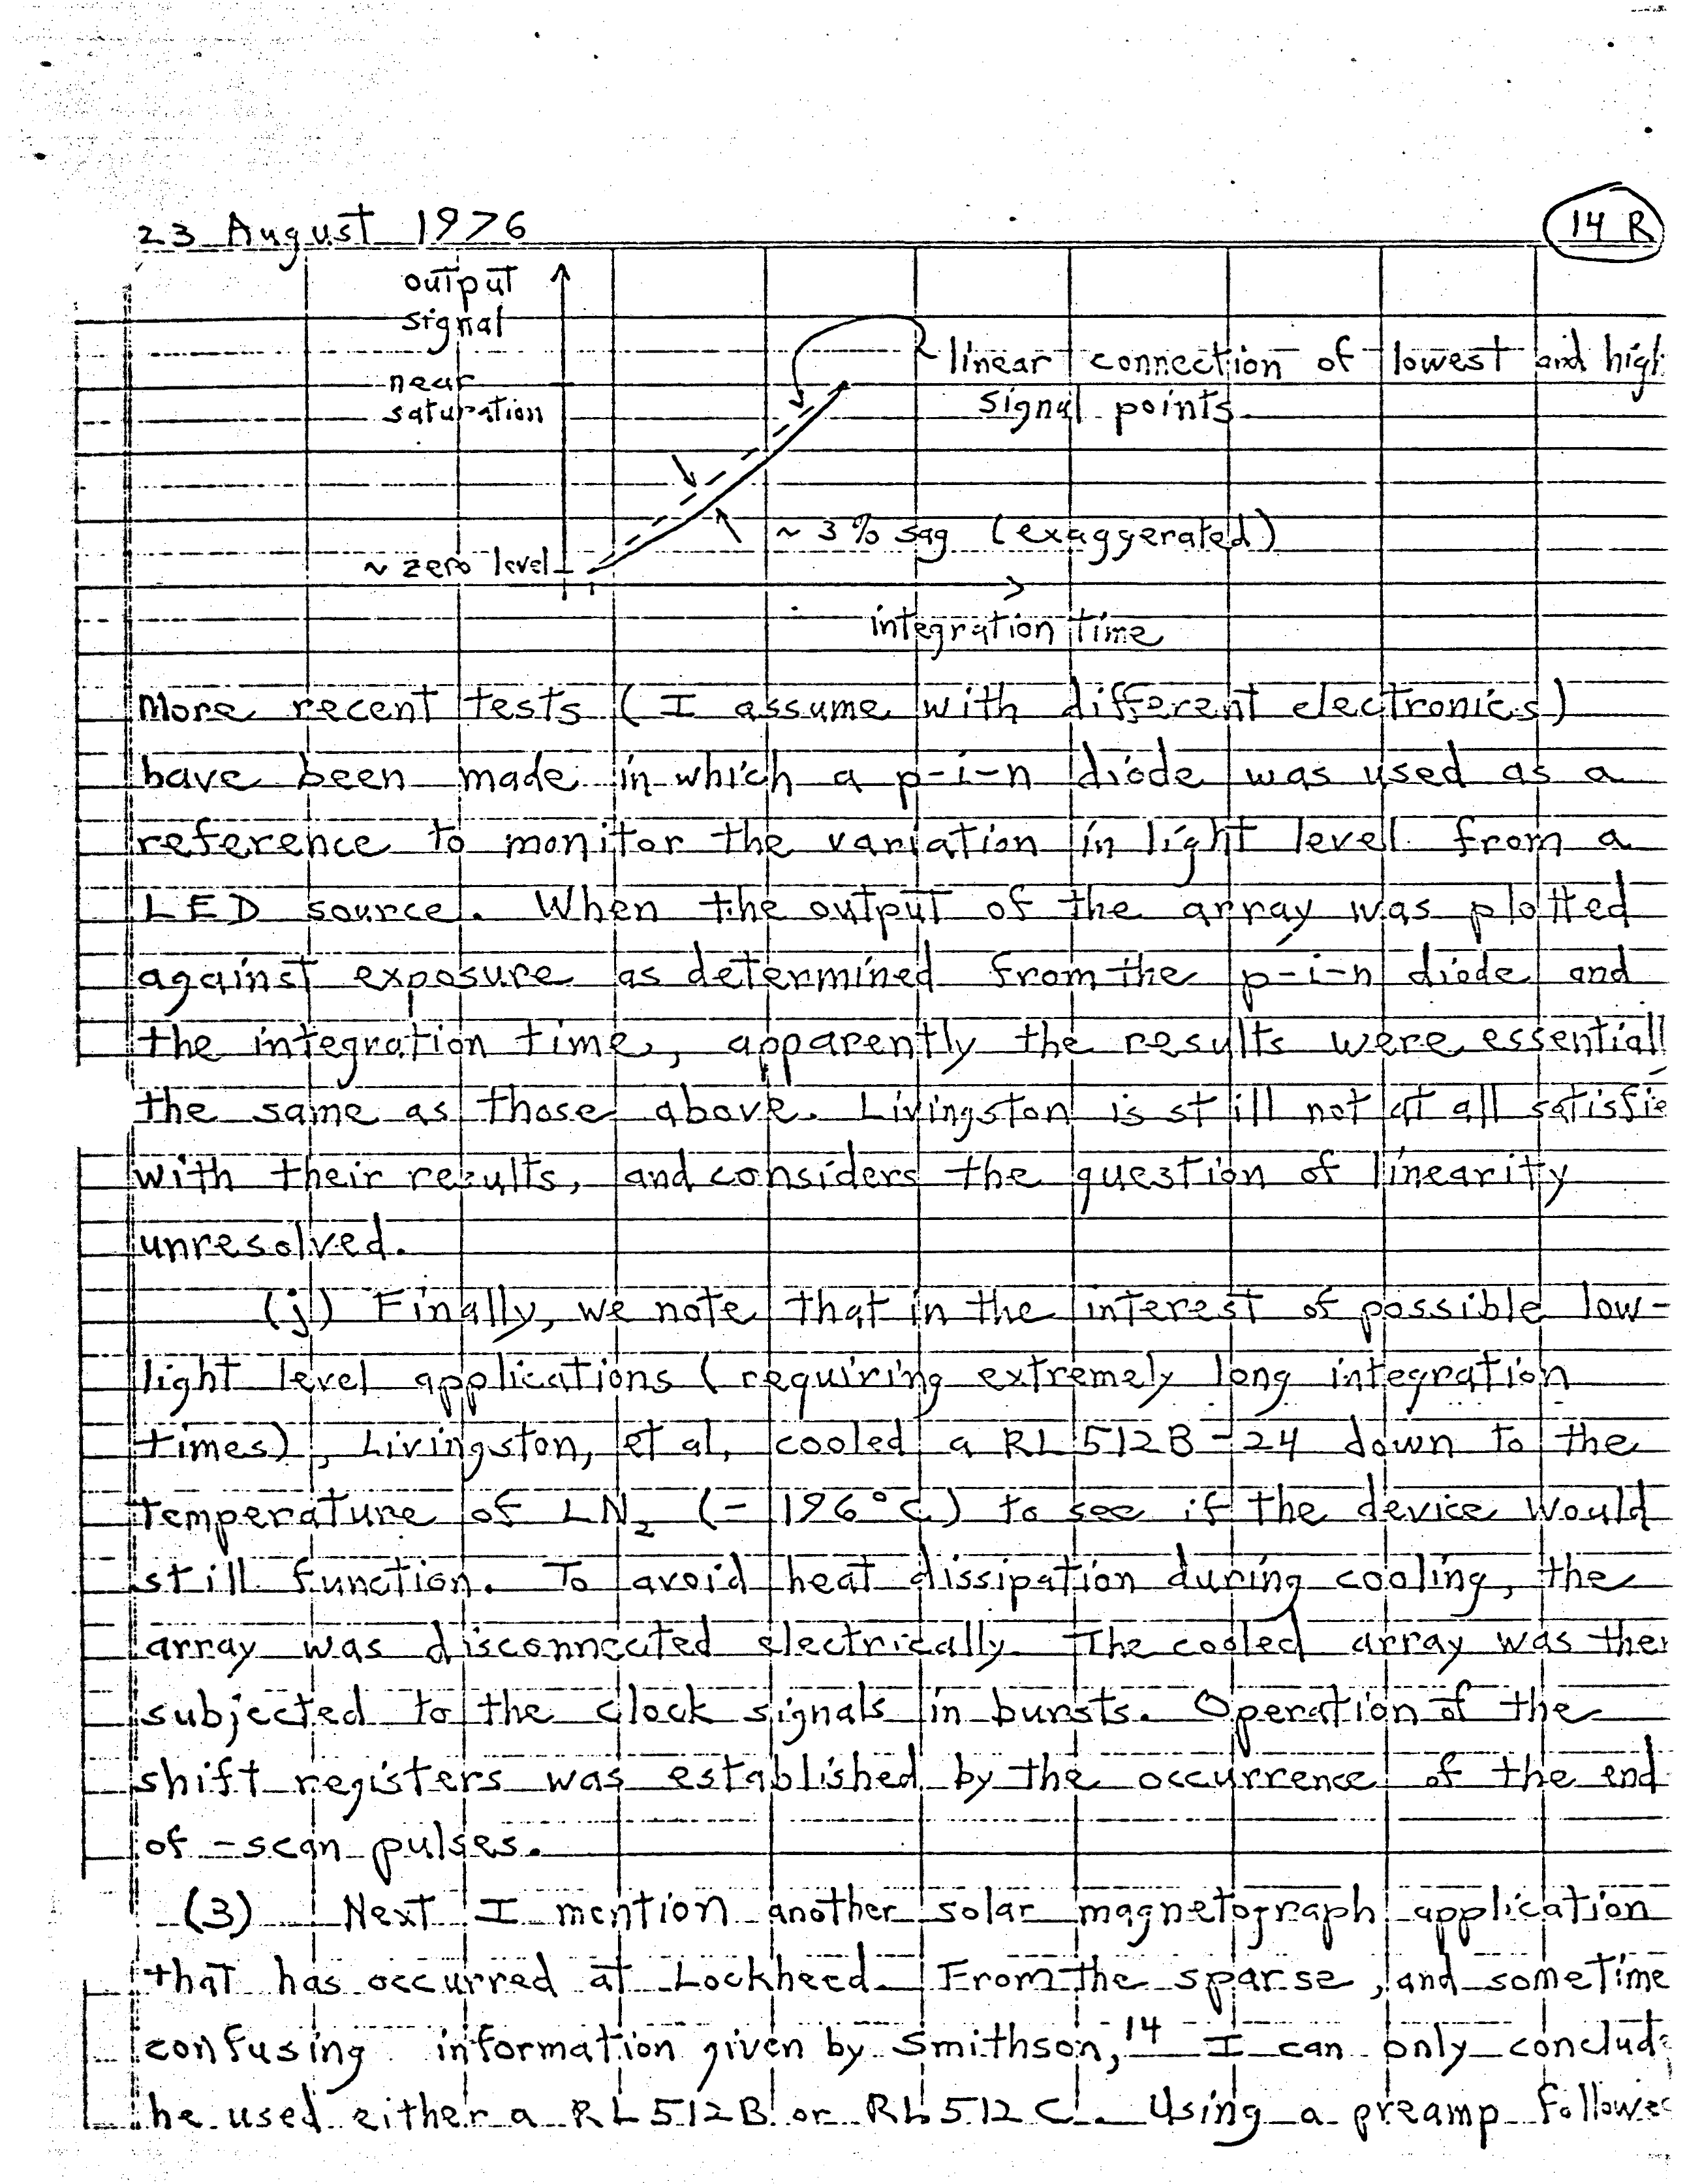 23 August 1976
14 R
output
signal
near
saturation
linear connection of lowest and high
signal points
~ 3% sag (exaggerated)
~ zero level
integration time
More recent tests (I assume with different electronics)
have been made in which a p-i-n diode was used as a
reference to monitor the variation in light level from a
LED source. When the output of the array was plotted
against exposure as determined from the p-i-n diode and
the integration time, apparently the results were essentiall
the same as those above. Livingston is still not at all satisfie
with their results, and considers the question of linearity
unresolved.
(j) Finally, we note that in the interest of possible low-
light level applications (requiring extremely long integration
times), Livingston, et al, cooled a RL512B-24 down to the
temperature of LN₂ (-196°C) to see if the device would
still function. To avoid heat dissipation during cooling, the
array was disconnected electrically. The cooled array was then
subjected to the clock signals in bursts. Operation of the
shift registers was established by the occurrence of the end
of-scan pulses.
(3) Next I mention another solar magnetograph application
that has occurred at Lockheed. From the sparse, and sometime
confusing information given by Smithson,¹⁴ I can only conclude
he used either a RL512B or RL512C. Using a preamp followed